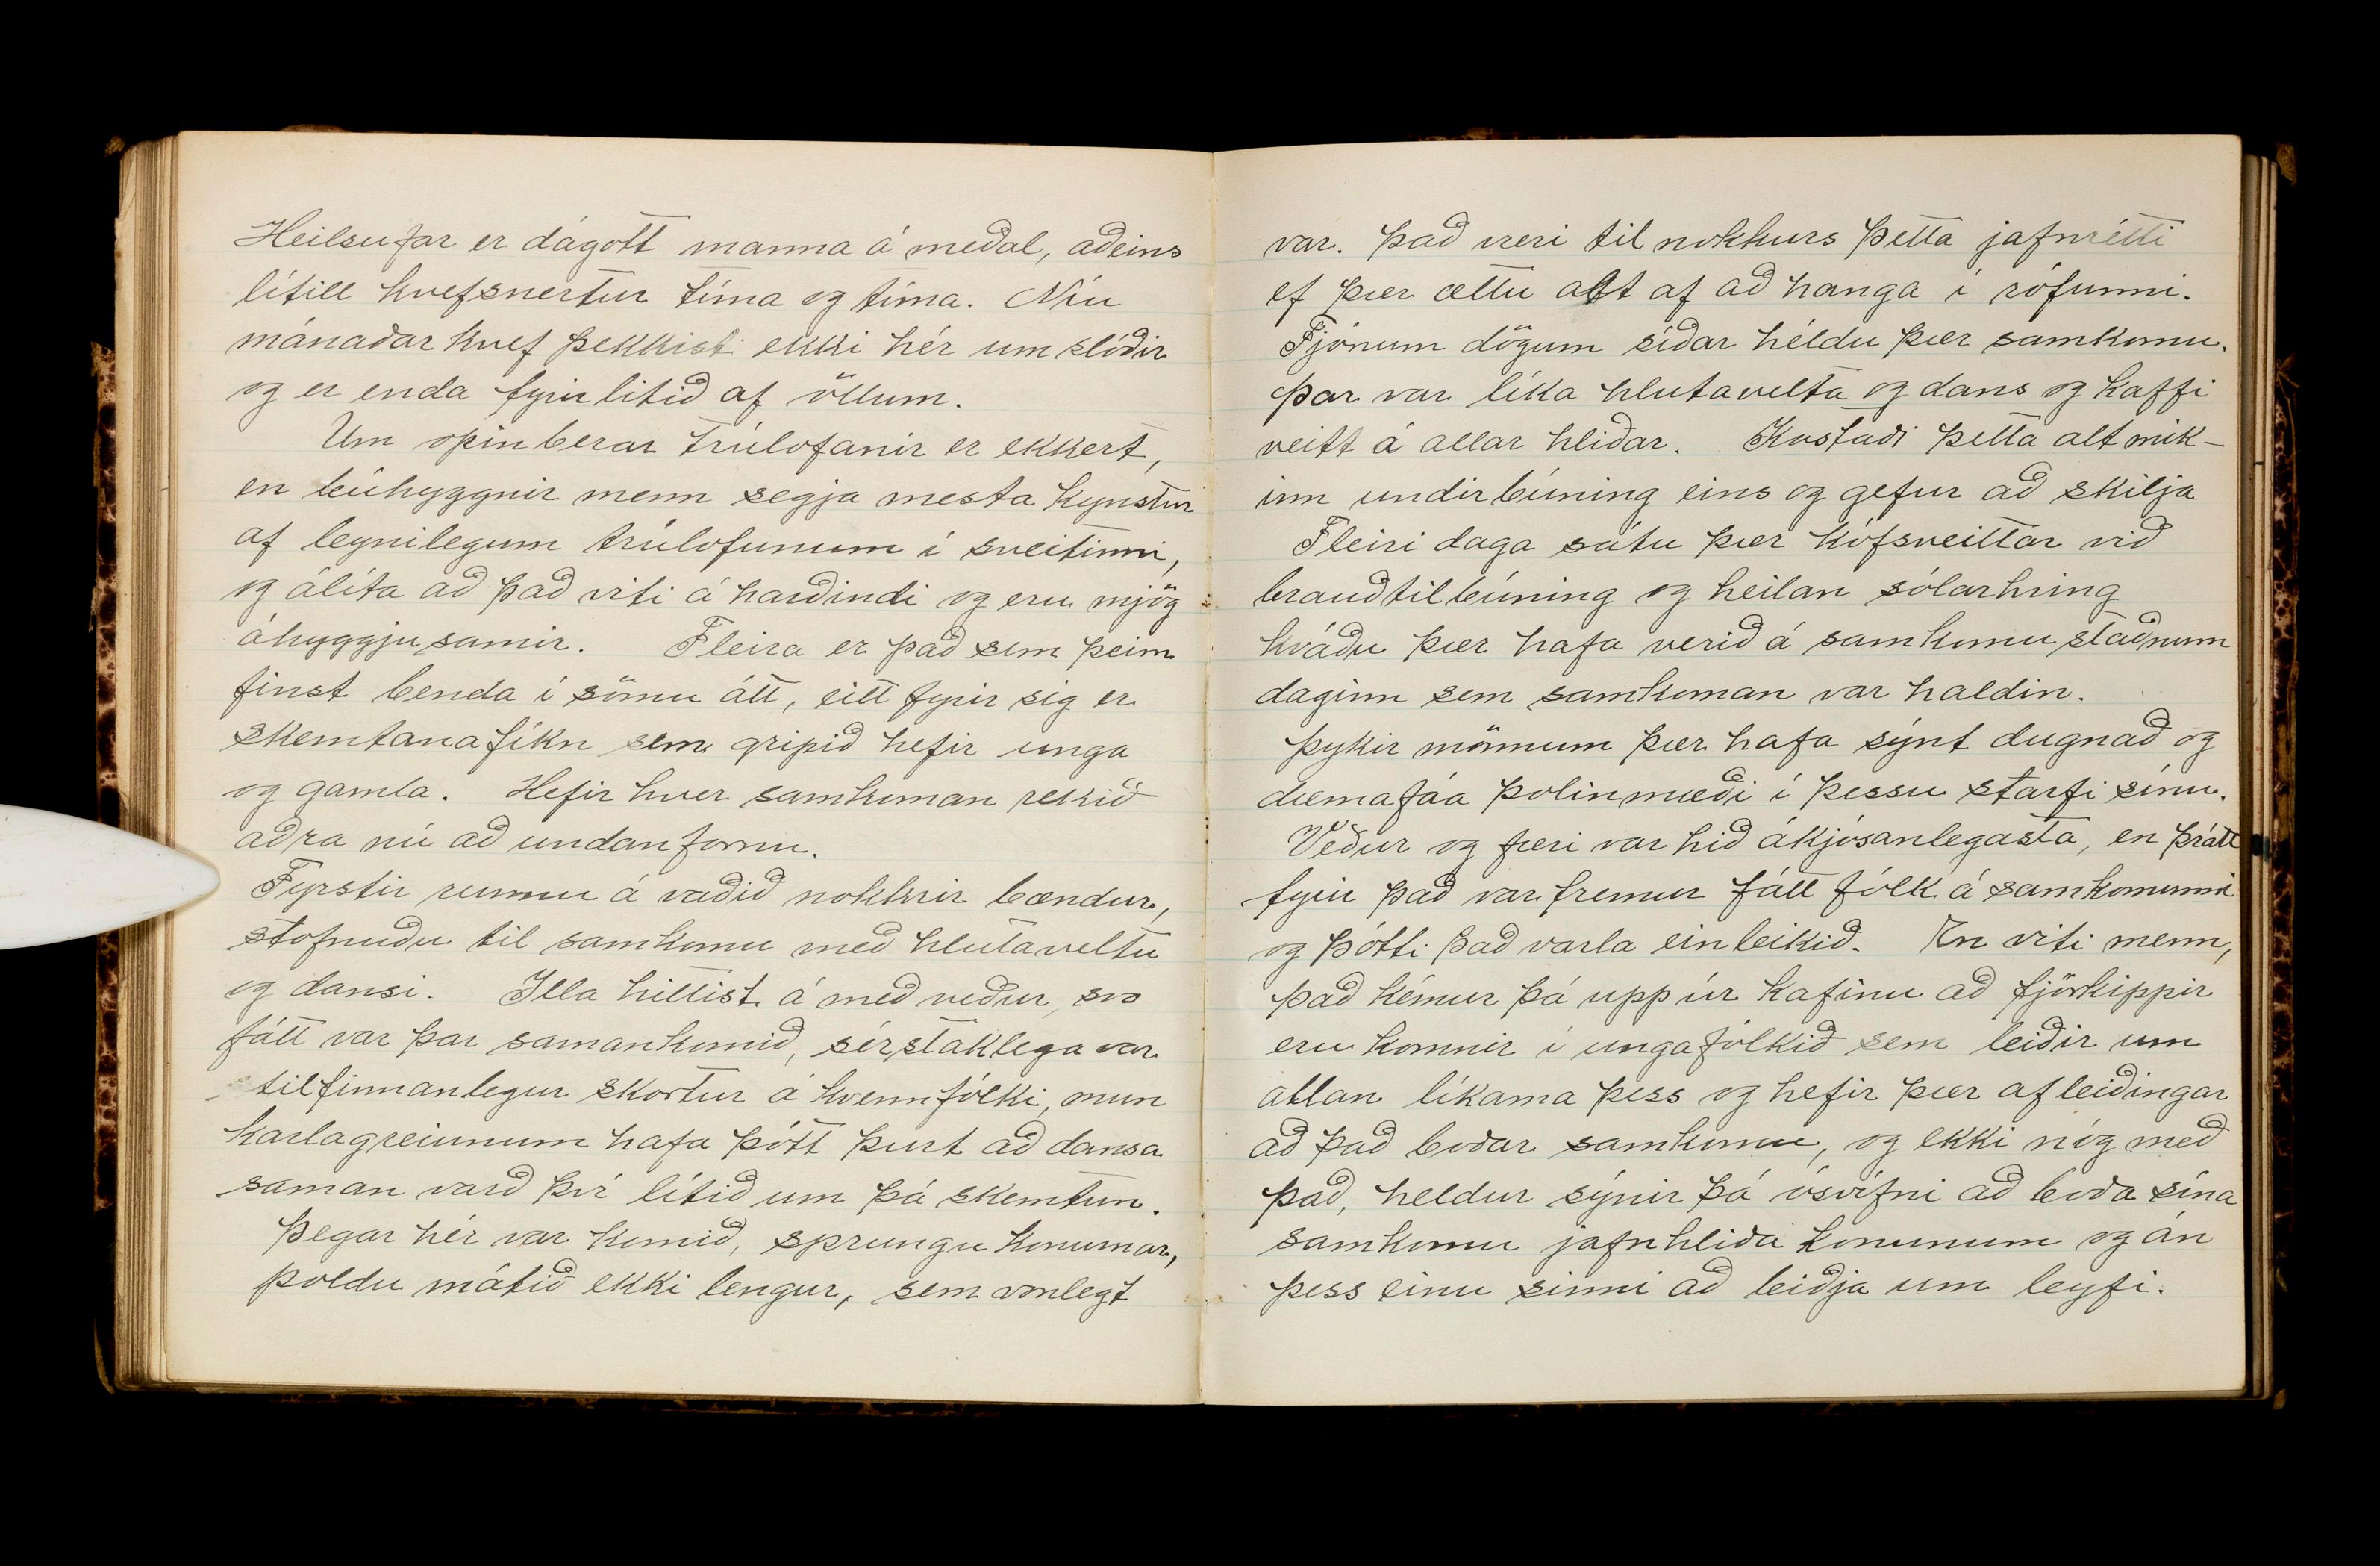 Heilsufar er dágott manna á meðal, aðeins
lítill kvefsnertur tíma og tíma. Níu
mánaðar kvef þekkist ekki hér um slóðir
og er enda fyrirlitið af öllum.
Um opinberar trúlofanir er ekkert,
en búhyggnir menn segja mesta kynstur
af leynilegum trúlofunum í sveitinni,
og álíta að það viti á harðindi og eru mjög
áhyggjusamir. Fleira er það sem þeim
finst benda í sömu átt, eitt fyrir sig er
skemtanafíkn sem gripið hefir unga
og gamla. Hefir hver samkoman rekið
aðra nú að undanförnu.
Fyrstir runnu á vaðið nokkrir bændur,
stofnuðu til samkomu með hlutaveltu
og dansi. Illa hittist á með veður, svo
fátt var þar samankomið, sérstaklega var
tilfinnanlegur skortur á kvennfólki, mun
karlagreiunum hafa þótt þurt að dansa
saman varð því lítið um þá skemtun.
Þegar hér var komið, sprungu konurnar,
þoldu mátið ekki lengur, sem vonlegt
var. Það væri til nokkurs þetta jafnrétti
ef þær ættu alt af að hanga í rófunni.
Fjórum dögum síðar héldu þær samkomu.
Þar var líka hlutavelta og dans og kaffi
veitt á allar hliðar. Kostaði þetta alt mik-
inn undirbúning eins og gefur að skilja
Fleiri daga sátu þær kófsveittar við
brauðtilbúning og heilan sólarhring
kváðu þær hafa verið á samkomustaðnum
daginn sem samkoman var haldin.
Þykir mönnum þær hafa sýnt dugnað og
dæmafáa þolinmæði í þessu starfi sínu.
Veður og færi var hið ákjósanlegasta, en þrátt
fyrir það var fremur fátt fólk á samkomunni
og þótti það varla einleikið. En viti menn,
það kemur þá upp úr kafinu að fjörkippir
eru komnir í ungafólkið sem leiðir um
allan líkama þess og hefir þær afleiðingar
að það boðar samkomu, og ekki nóg með
það, heldur sýnir þá ósvífni að boða sína
samkomu jafnhliða konunum og án
þess einu sinni að beiðja um leyfi.